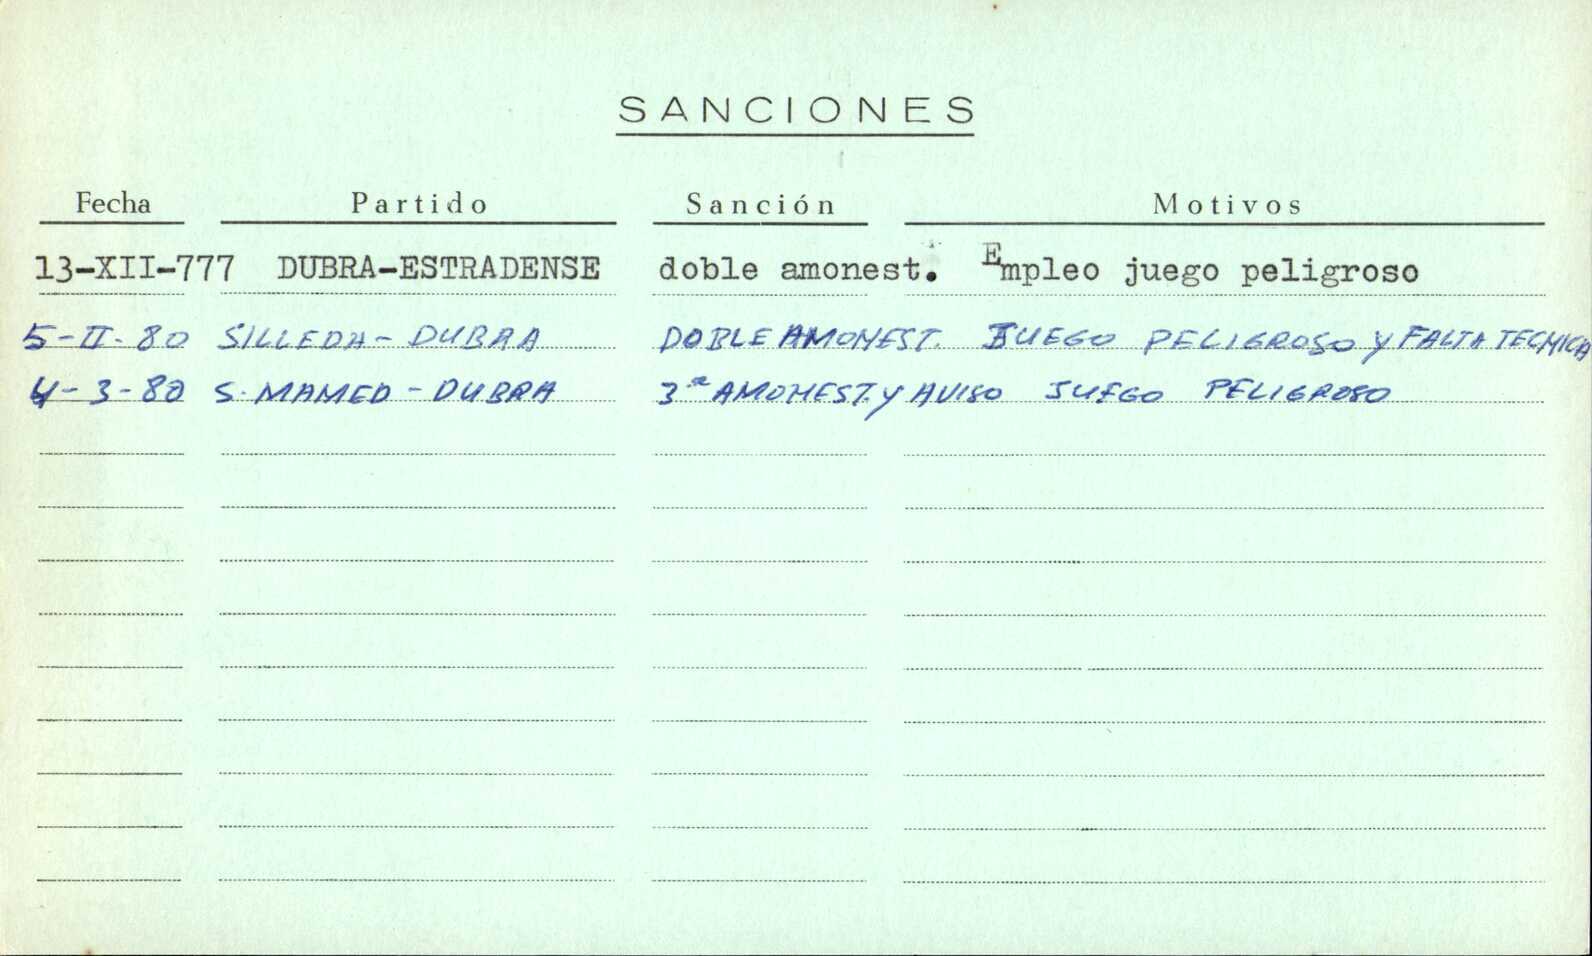 SANCIONES
Fecha Partido Sanción Motivos
13-XII-777 DUBRA-ESTRADENSE doble amonest. Empleo juego peligroso
5-II-80 SILLEDA-DUBRA DOBLE AMONEST. JUEGO PELIGROSO Y FALTA TECNICA
4-3-80 S. MAMED-DUBRA 3ª AMONEST. Y AVISO JUEGO PELIGROSO